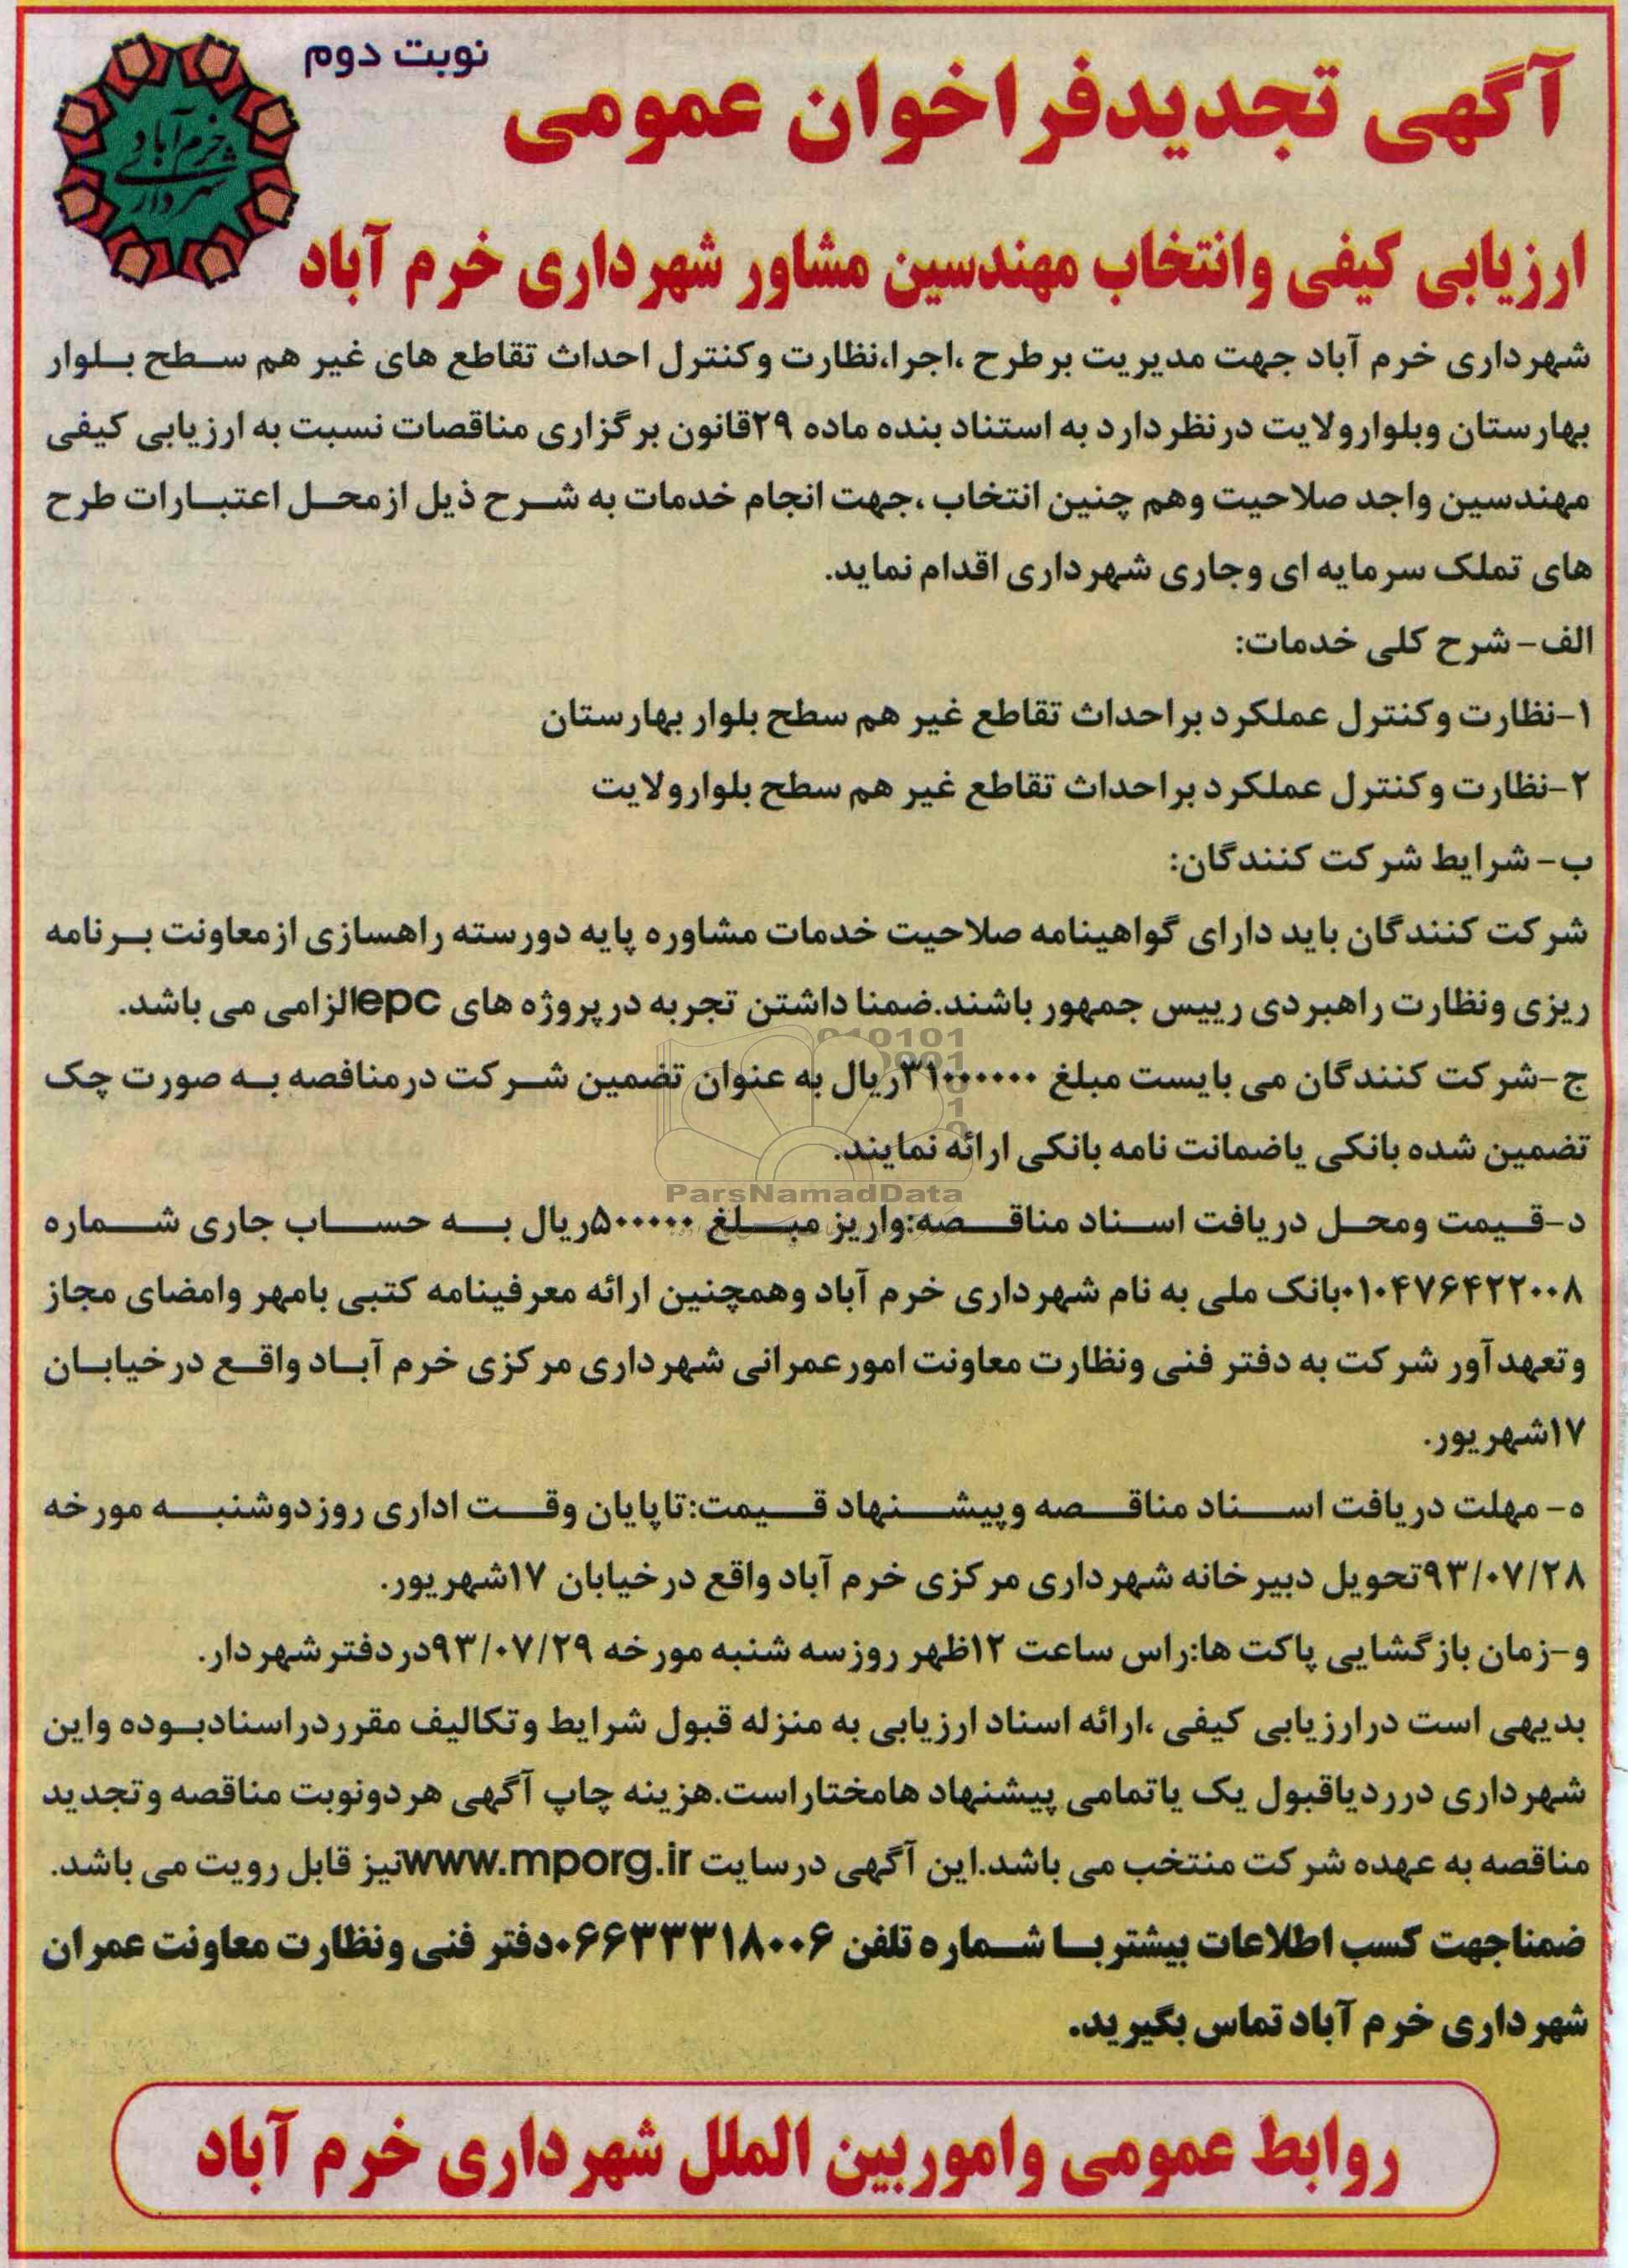 نوبت دوم
آگهی تجدیدفراخوان عمومی
خرم آباد
شهرداری
ارزیابی کیفی وانتخاب مهندسین مشاور شهرداری خرم آباد
شهرداری خرم آباد جهت مدیریت برطرح ،اجرا،نظارت وکنترل احداث تقاطع های غیر هم سطح بلوار
بهارستان وبلوارولایت درنظردارد به استناد بنده ماده ۲۹قانون برگزاری مناقصات نسبت به ارزیابی کیفی
مهندسین واجد صلاحیت وهم چنین انتخاب ،جهت انجام خدمات به شرح ذیل ازمحل اعتبارات طرح
های تملک سرمایه ای وجاری شهرداری اقدام نماید.
الف- شرح کلی خدمات:
۱-نظارت وکنترل عملکرد براحداث تقاطع غیر هم سطح بلوار بهارستان
۲-نظارت وکنترل عملکرد براحداث تقاطع غیر هم سطح بلوارولایت
ب- شرایط شرکت کنندگان:
شرکت کنندگان باید دارای گواهینامه صلاحیت خدمات مشاوره پایه دورسته راهسازی ازمعاونت برنامه
ریزی ونظارت راهبردی رییس جمهور باشند.ضمنا داشتن تجربه درپروژه های epcالزامی می باشد.
ج-شرکت کنندگان می بایست مبلغ ۳۱۰۰۰۰۰۰ریال به عنوان تضمین شرکت درمنافصه به صورت چک
تضمین شده بانکی یاضمانت نامه بانکی ارائه نمایند.
ParsNamadData
د-قیمت ومحل دریافت اسناد مناقصه:واریز مبلغ ۵۰۰۰۰۰ریال به حساب جاری شماره
۰۱۰۴۷۶۴۲۲۰۰۸بانک ملی به نام شهرداری خرم آباد وهمچنین ارائه معرفینامه کتبی بامهر وامضای مجاز
وتعهدآور شرکت به دفتر فنی ونظارت معاونت امورعمرانی شهرداری مرکزی خرم آباد واقع درخیابان
۱۷شهریور.
ه- مهلت دریافت اسناد مناقصه وپیشنهاد قیمت:تاپایان وقت اداری روزدوشنبه مورخه
۹۳/۰۷/۲۸تحویل دبیرخانه شهرداری مرکزی خرم آباد واقع درخیابان ۱۷شهریور.
و-زمان بازگشایی پاکت ها:راس ساعت ۱۲ظهر روزسه شنبه مورخه ۹۳/۰۷/۲۹دردفترشهردار.
بدیهی است درارزیابی کیفی ،ارائه اسناد ارزیابی به منزله قبول شرایط وتکالیف مقرردراسنادبوده واین
شهرداری درردیاقبول یک یاتمامی پیشنهاد هامختاراست.هزینه چاپ آگهی هردونوبت مناقصه وتجدید
مناقصه به عهده شرکت منتخب می باشد.این آگهی درسایت www.mporg.irنیز قابل رویت می باشد.
ضمناجهت کسب اطلاعات بیشتربا شماره تلفن ۰۶۶۳۳۳۱۸۰۰۶دفتر فنی ونظارت معاونت عمران
شهرداری خرم آباد تماس بگیرید.
روابط عمومی واموربین الملل شهرداری خرم آباد